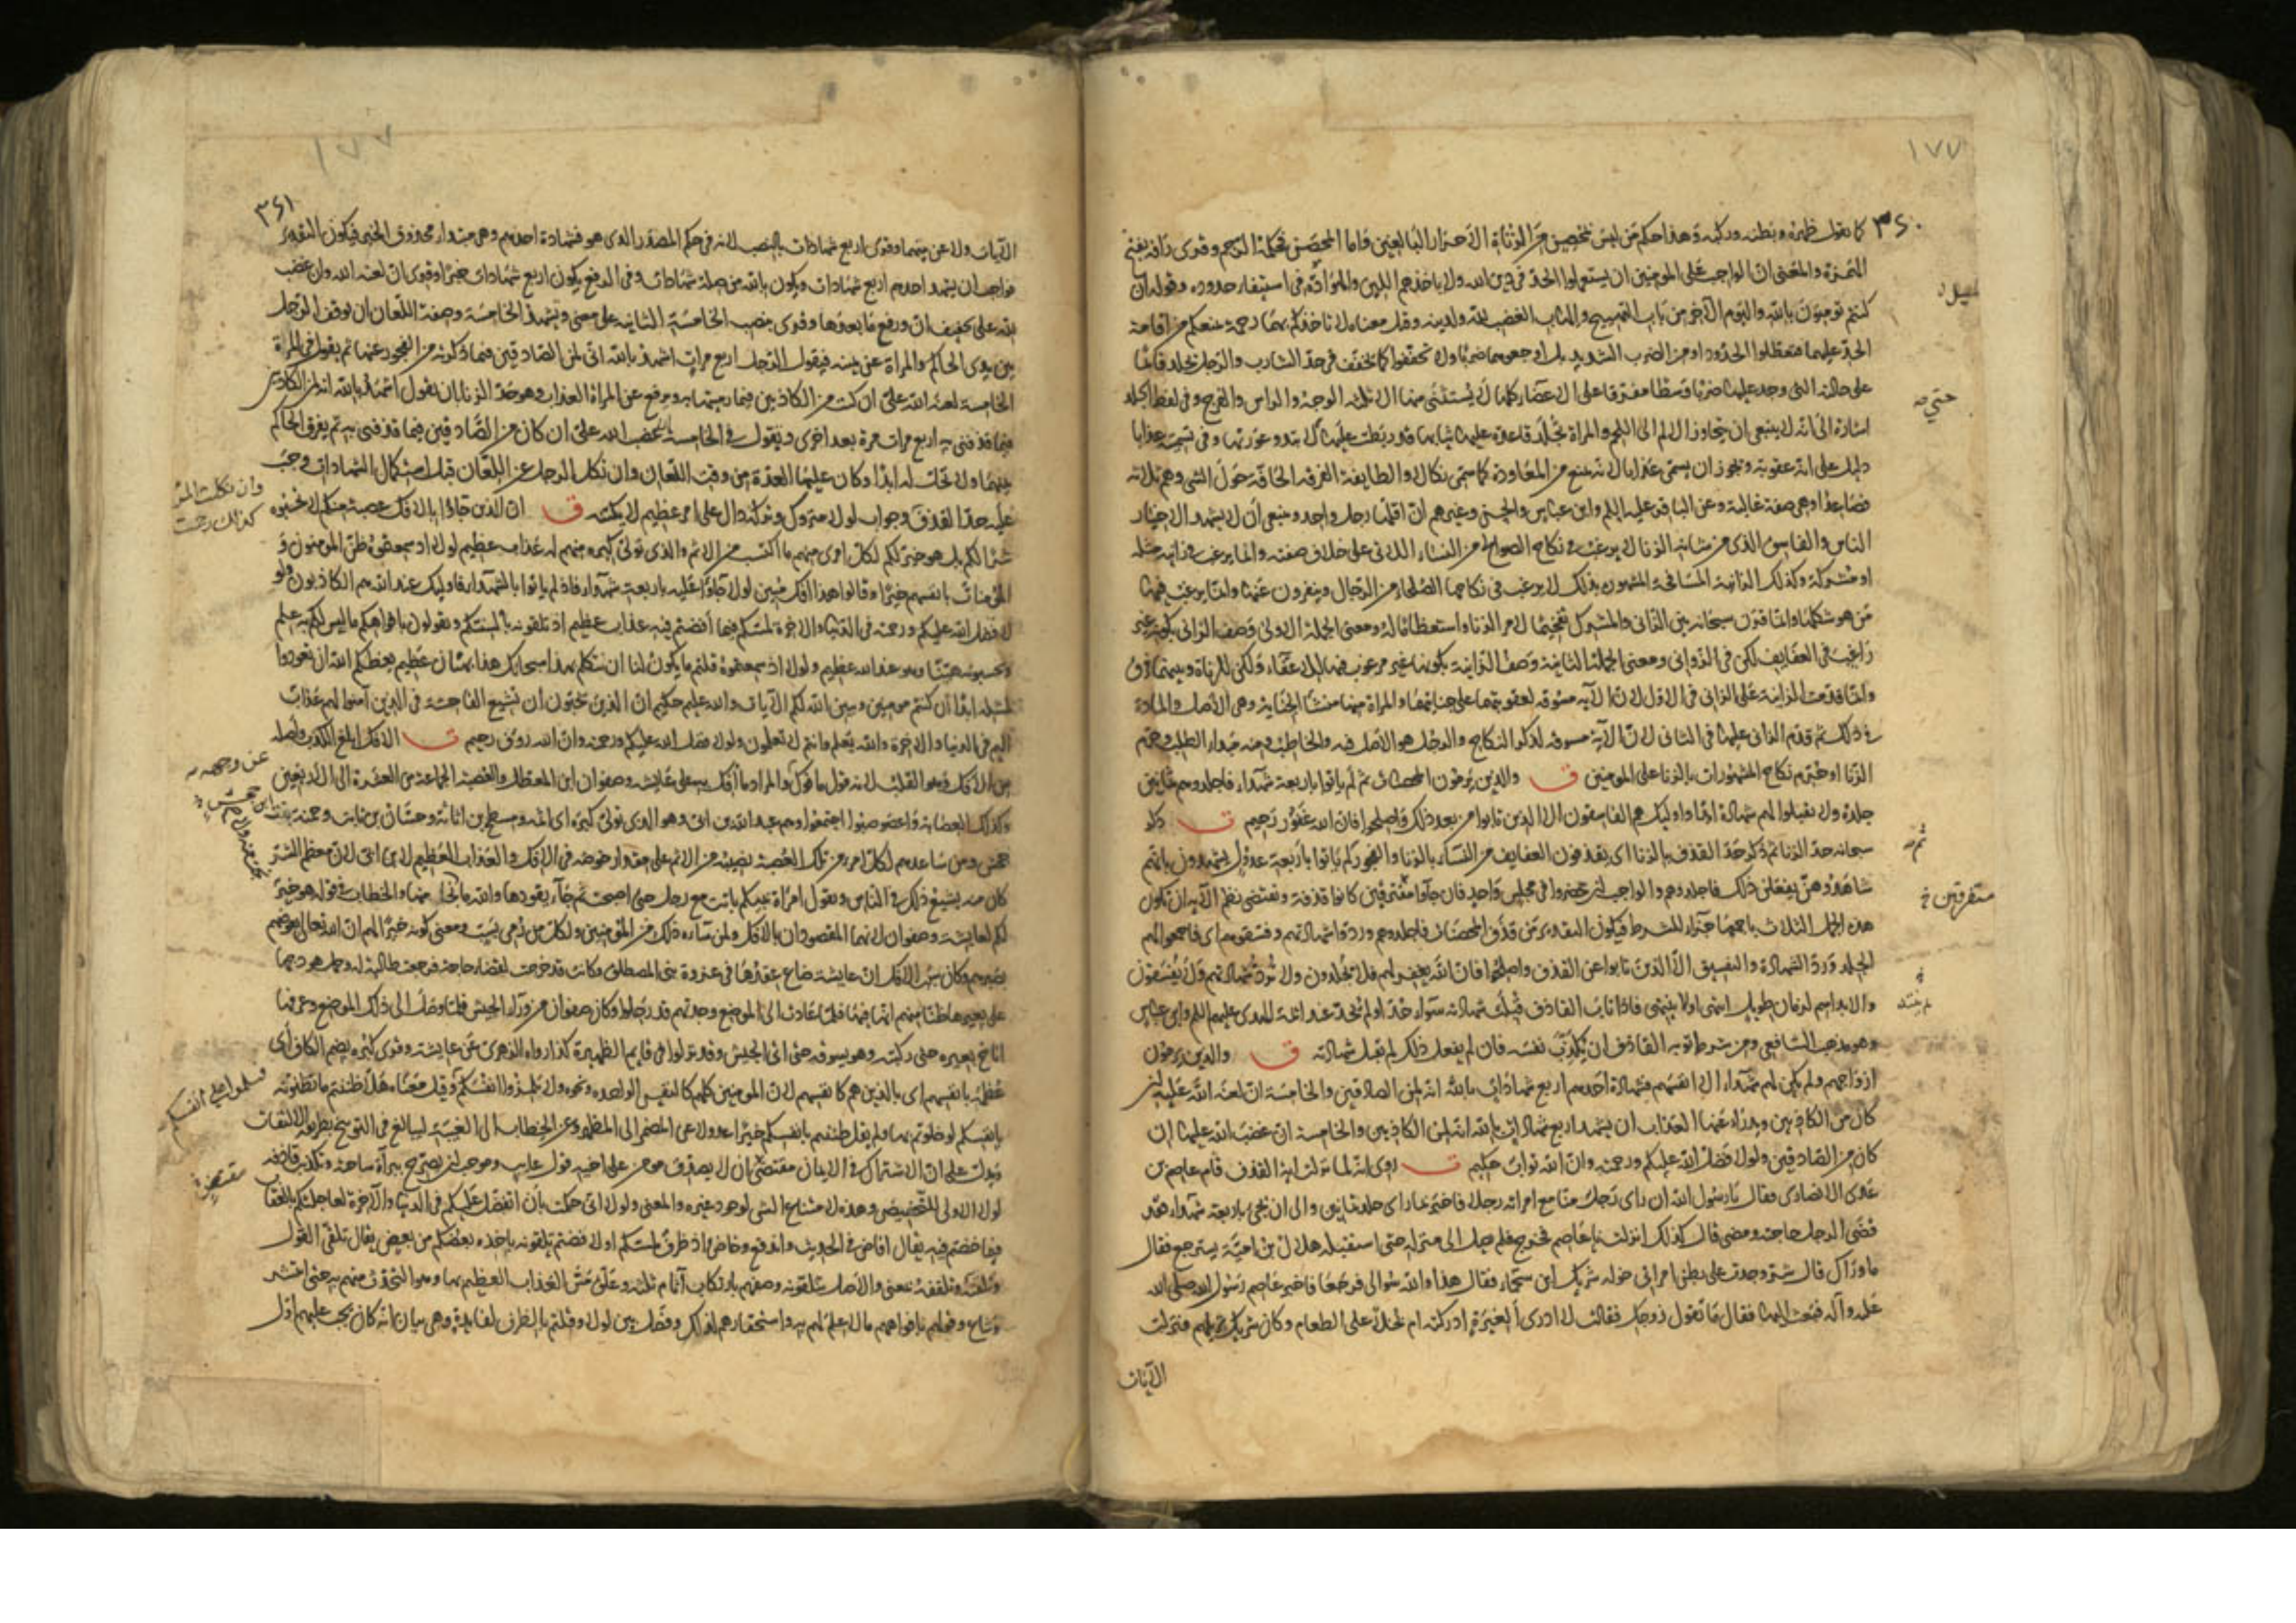 ١٧٧
٣٦٠
كما تقول ظهره وبطنه وركبه وهذا حكم من ليس بمحصن من الزناة الأحرار البالغين فاما المحصن فحكمه الرجم وقرى رأفة بفتح
الهمزة والمعنى ان الواجب على المومنين ان يستعملوا الحد في دين الله ولا ياخذهم اللين والهوادة في استيفاء حدوده وقوله ان
كنتم تومنون بالله واليوم الآخر من باب التهييج والهاب الغضب لله ولدينه وقيل معناه لا تاخذكم بهما رحمة تمنعكم من اقامة
الحد عليهما فتعطلوا الحدود او من الضرب الشديد بل اوجعوهما ضربا ولا تخففوا كما يخفف في حد الشارب والرجل يجلد قائما
على حالته التي وجد عليها ضربا وسطا مفرقا على الاعضاء كلها لا يستثنى منها الا ثلثة الوجه والراس والفرج وفي لفظ الجلد
اشارة الى انه لا ينبغي ان يتجاوز الالم الى اللحم والمراة تجلد قاعدة عليها ثيابها قد ربطت عليها لا تبدو عورتها وفي تسميته عذابا
دليل على انه عقوبة ويجوز ان يسمى عذابا لانه يمنع من المعاودة كما سمي نكالا والطايفة الفرقة الحافة حول الشي وهم ثلثة
فصاعدا وهي صفة غالبة وعن الباقر عليه السلم وابن عباس والحسن وغيرهم ان اقلها رجل واحد وينبغي ان لا يشهد الا خيار
الناس والفاسق الذي من شانه الزنا لا يرغب في نكاح الصوالح من النساء اللاتي على خلاف صفته وانما يرغب في زانية مثله
او مشركة وكذلك الزانية المسافحة المشهورة بذلك لا يرغب في نكاحها الصلحاء من الرجال وينفرون عنها وانما يرغب فيها
من هو شكلها وانما قرن سبحانه بين الزاني والمشرك تفخيما لامر الزنا واستعظاما له ومعنى الجملة الاولى وصف الزاني بكونه غير
راغب في العفايف لكن في الزواني ومعنى الجملة الثانية وصف الزانية بكونها غير مرغوب فيها للاعفاء ولكن للزناة وبينهما فرق
وانما قدمت الزانية على الزاني في الاول لان الاية مسوقة لعقوبتهما على جنايتهما والمراة منها منشا الجناية وهي الاصل والمادة
في ذلك ثم قدم الزاني عليها في الثاني لان الآية مسوقة لذكر النكاح والرجل هو الاصل فيه والخاطب ومنه مبدأ الطلب وحرم
الزنا او حرم نكاح المشهورات بالزنا على المومنين ق والذين يرمون المحصنات ثم لم ياتوا باربعة شهداء فاجلدوهم ثمانين
جلدة ولا تقبلوا لهم شهادة ابدا واوليك هم الفاسقون الا الذين تابوا من بعد ذلك واصلحوا فان الله غفور رحيم ت ذكر
سبحانه حد الزنا ثم ذكر حد القذف بالزنا اي يقذفون العفايف من النساء بالزنا والفجور لم ياتوا باربعة عدول يشهدون بانهم
شاهدوهن يفعلن ذلك فاجلدوهم والواجب ان يحضروا في مجلس واحد فان جاؤا متفرقين كانوا قذفة ويقتضي نظم الآية ان تكون
هذه الجمل الثلاث باجمعها جزاء للشرط فيكون التقدير من قذف المحصنات فاجلدوهم وردوا شهادتهم وفسقوهم اي فاجمعوا لهم
الجلد ورد الشهادة والتفسيق الا الذين تابوا عن القذف واصلحوا فان الله يغفر لهم فلا يجلدون ولا ترد شهادتهم ولا يفسقون
والابد اسم لزمان طويل انتهى او لا ينتهي فاذا تاب القاذف قبلت شهادته سواء حد او لم يحد عند ائمة الهدى عليهم السلم وابن عباس
وهو مذهب الشافعي ومن شرط توبة القاذف ان يكذب نفسه فان لم يفعل ذلك لم تقبل شهادته ق والذين يرمون
ازواجهم ولم يكن لهم شهداء الا انفسهم فشهادة احدهم اربع شهادات بالله انه لمن الصادقين والخامسة ان لعنة الله عليه ان
كان من الكاذبين ويدرؤا عنها العذاب ان تشهد اربع شهادات بالله انه لمن الكاذبين والخامسة ان غضب الله عليها ان
كان من الصادقين ولولا فضل الله عليكم ورحمته وان الله تواب حكيم ت روي انه لما نزلت اية القذف قام عاصم بن
عدي الانصاري فقال يا رسول الله ان راى رجل منا مع امراته رجلا فاخبر بما راى جلد ثمانين والى ان يجئ باربعة شهداء فقد
قضى الرجل حاجته ومضى قال كذلك انزلت يا عاصم فخرج فلم يصل الى منزله حتى استقبله هلال بن امية يسترجع فقال
ما وراك قال شر وجدت على بطن امراتي خولة شريك ابن سحماء فقال هذا والله سؤالي فرجعا فاخبر عاصم رسول الله صلى الله
عليه وآله فبعث اليها فقال ما تقول زوجك فقالت لا ادري الغيرة ادركته ام بخلا على الطعام وكان شريك نزيلهم فنزلت
الآيات
حتى صه
ثم صه
متفرقين خ
١٧٧
٣٦١
الآيات ولاعن بينهما وقرى اربع شهادات بالنصب لانه في حكم المصدر الذي هو فشهادة احدهم وهي مبتداء محذوف الخبر فيكون التقدير
فواجب ان يشهد احدهم اربع شهادات ويكون بالله من صلة شهادات وفي الرفع يكون اربع شهادات خبرا وقرى ان لعنة الله وان غضب
الله على تخفيف ان ورفع ما بعدها وقرى بنصب الخامسة الثانية على معنى ويشهد الخامسة وصفة اللعان ان يوقف الرجل
بين يدي الحاكم والمراة عن يمينه فيقول الرجل اربع مرات اشهد بالله اني لمن الصادقين فيما ذكرته من الفجور عنها ثم يقول في المرة
الخامسة لعنة الله علي ان كنت من الكاذبين فيما رميتها به ويرفع عن المراة العذاب وهو حد الزنا بان تقول اشهد بالله انه لمن الكاذبين
فيما قذفني به اربع مرات مرة بعد اخرى وتقول في الخامسة غضب الله علي ان كان من الصادقين فيما قذفني به ثم يفرق الحاكم
بينهما ولا تحل له ابدا وكان عليها العدة من وقت اللعان وان نكل الرجل عن اللعان قبل استكمال الشهادات وجب
عليه حد القذف وجواب لولا متروك وتركه دال على امر عظيم لا يكتنه ق ان الذين جاؤا بالافك عصبة منكم لا تحسبوه
شرا لكم بل هو خير لكم لكل امرئ منهم ما اكتسب من الاثم والذي تولى كبره منهم له عذاب عظيم لولا اذ سمعتموه ظن المومنون و
المؤمنات بانفسهم خيرا وقالوا هذا افك مبين لولا جاؤا عليه باربعة شهداء فاذ لم ياتوا بالشهداء فاوليك عند الله هم الكاذبون ولو
لا فضل الله عليكم ورحمته في الدنيا والاخرة لمسكم فيما أفضتم فيه عذاب عظيم اذ تلقونه بالسنتكم وتقولون بافواهكم ما ليس لكم به علم
وتحسبونه هينا وهو عند الله عظيم ولولا اذ سمعتموه قلتم ما يكون لنا ان نتكلم بهذا سبحانك هذا بهتان عظيم يعظكم الله ان تعودوا
لمثله ابدا ان كنتم مومنين ويبين الله لكم الآيات والله عليم حكيم ان الذين يحبون ان تشيع الفاحشة في الذين آمنوا لهم عذاب
اليم في الدنيا والاخرة والله يعلم وانتم لا تعلمون ولولا فضل الله عليكم ورحمته وان الله رؤف رحيم ت الافك ابلغ الكذب واصله
من الافك وهو القلب لانه قول مافوك والمراد ما أفك به على عايشة وصفوان ابن المعطل والعصبة الجماعة من العشرة الى الاربعين
وكذلك العصابة واعصوصبوا اجتمعوا وهم عبد الله بن ابي وهو الذي تولى كبره اي اثمه ومسطح بن اثاثة وحسان بن ثابت وحمنة بنت
جحش ومن ساعدهم لكل امرئ من تلك العصبة نصيبه من الاثم على مقدار خوضه في الافك والعذاب العظيم لابن ابي لان معظم الشر
كان منه يشيع ذلك في الناس ويقول امراة نبيكم باتت مع رجل حتى اصبحت ثم جاء يقودها والله ما نجا منها والخطاب في قوله هو خير
لكم لعايشة وصفوان لانهما المقصودان بالافك ولمن ساءه ذلك من المؤمنين ولكل من رمي بسب ومعنى كونه خيرا لهم ان الله تعالى يعوضهم
بصبرهم وكان سبب الافك ان عايشة ضاع عقدها في غزوة بني المصطلق وكانت قد خرجت لقضاء حاجة فرجعت طالبة له وحمل هودجها
على بعيرها ظنا منهم انها فيها فلما عادت الى الموضع وجدتهم قد رحلوا وكان صفوان من وراء الجيش فلما وصل الى ذلك الموضع وعرفها
اناخ بعيره حتى ركبته وهو يسوقه حتى اتى الجيش وقد نزلوا في قايم الظهيرة كذا رواه الزهري عن عايشة وقرى كبره بضم الكاف اي
عظمه بانفسهم اي بالذين هم كانفسهم لان المومنين كلهم كالنفس الواحدة ونحوه ولا تلمزوا انفسكم وقيل معناه هلا ظننتم ما تظنونه
بانفسكم لو خلوتم بها ولم يقل ظننتم بانفسكم خيرا عدولا عن المضمر الى المظهر وعن الخطاب الى الغيبة ليبالغ في التوبيخ بطريقة الالتفات
ويدل على ان الاشتراك في الايمان مقتض ان لا يصدق مومن على اخيه قول عايب وموجب ان يصرح ببرآة ساحته وتكذيب قاذفه
لولا الاولى للتحضيض وهذه لامتناع الشي لوجود غيره والمعنى ولولا اني حكمت بان اتفضل عليكم في الدنيا والآخرة لعاجلتكم بالعقاب
فيما خضتم فيه يقال افاض في الحديث واندفع وخاض اذ ظرف لمسكم او لافضتم تلقونه ياخذه بعضكم من بعض يقال تلقى القول
وتلقنه وتلقفه بمعنى والاصل تتلقونه وصفهم بارتكاب آثام ثلثة وعلق مس العذاب العظيم بها وهو التحدث منهم به حتى انتشر
وشاع وقولهم بافواههم ما لا علم لهم به واستحقارهم لذلك وفصل بين لولا وقلتم بالظرف لفايدة وهي بيان انه كان يجب عليهم اول
وان نكلت المر
كذلك رجمت
فسلموا على انفسكم